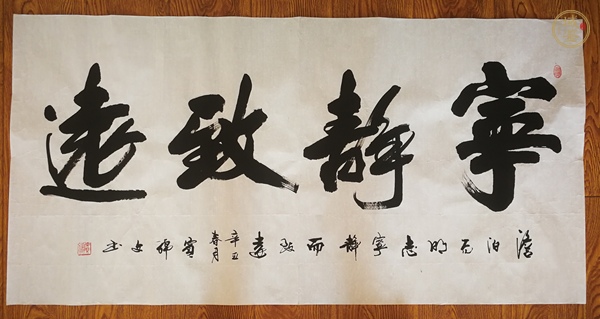 寧靜致遠
澹泊而明志寧靜而致遠
辛丑
春月